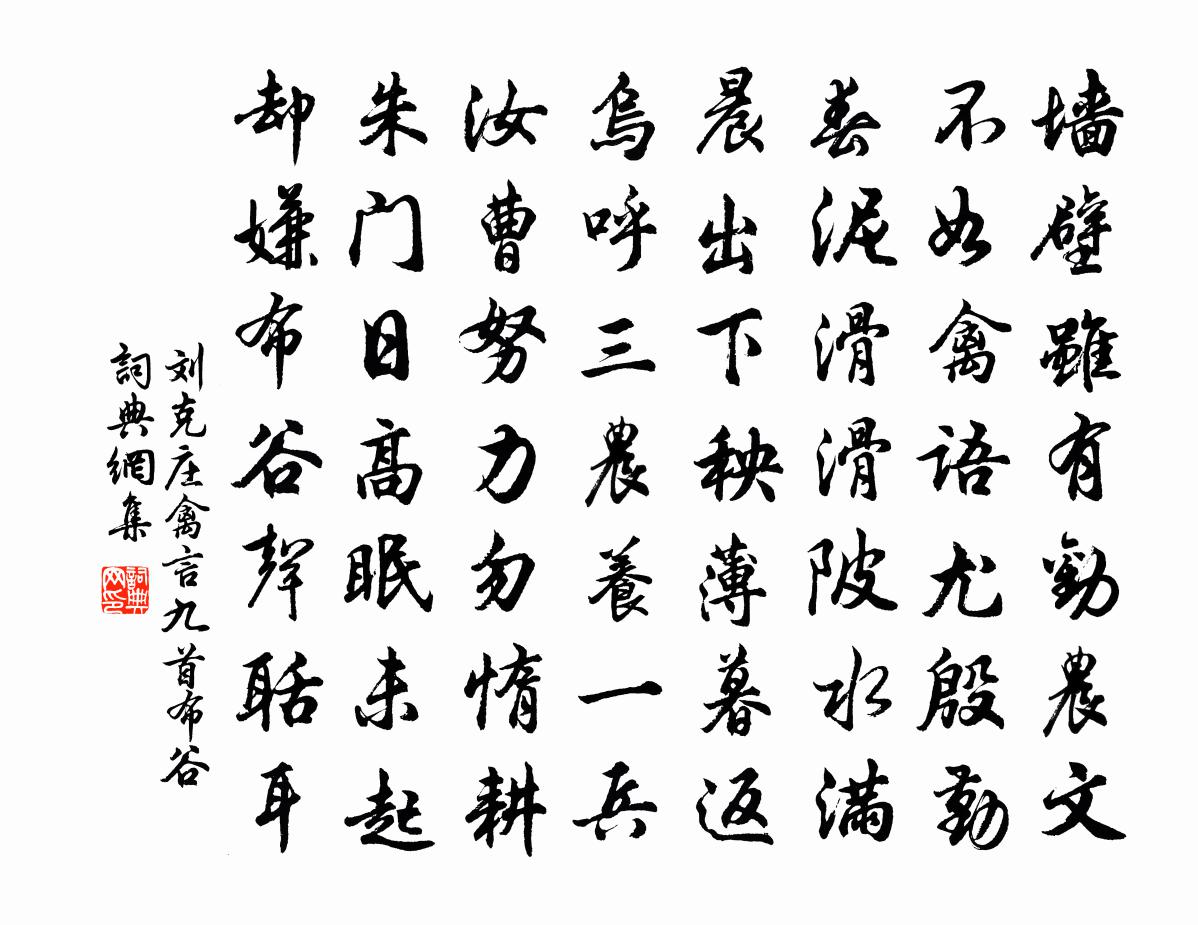 墙壁雖有勸農文
不如禽語尤殷勤
春泥滑滑陂水滿
晨出下秧薄暮返
烏呼三農養一兵
汝曹努力勿惰耕
朱门日高眠未起
却嫌布谷聲聒耳
刘克庄禽言九首布谷
詞典網集
詞典
网印